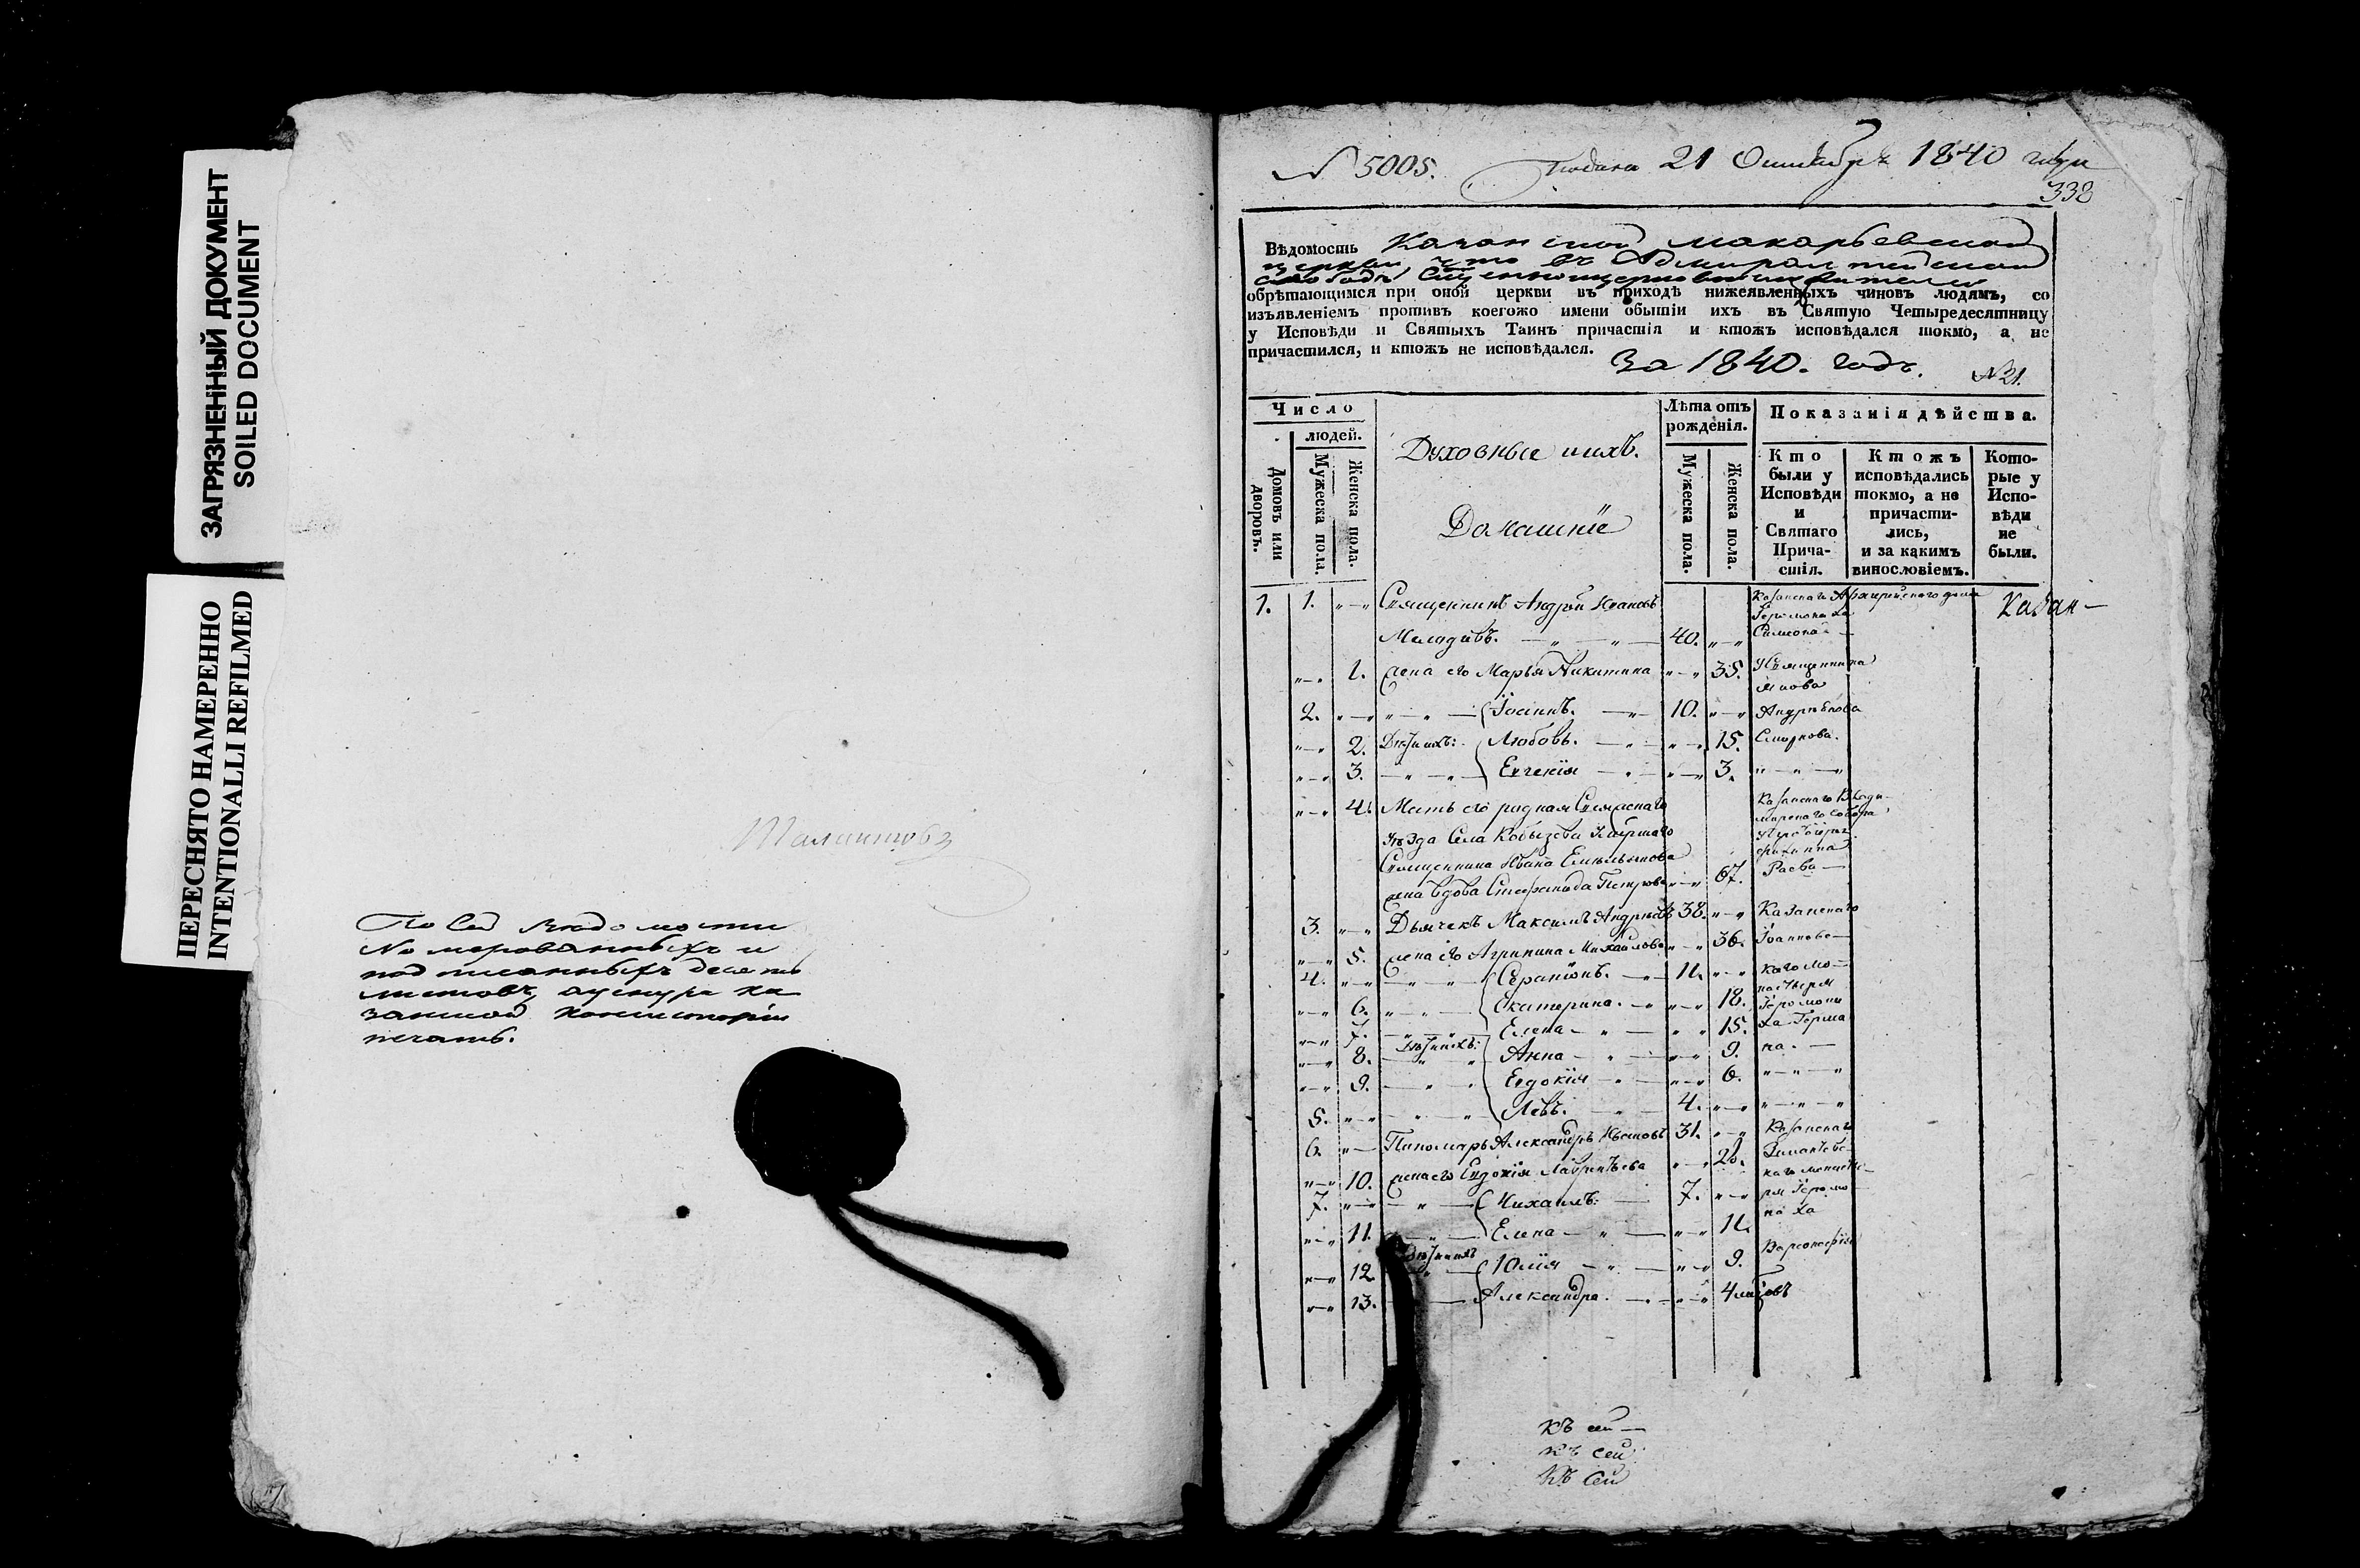 ЗАГРЯЗНЕННЫЙ ДОКУМЕНТ
SOILED DOCUMENT
ПЕРЕСНЯТО НАМЕРЕННО
INTENTIONALLI REFILMED
По сей ведомости
номерованныхъ и
подписанныхъ десять
листовъ, а у снура ка
занской консисторіи
печать.
№ 5005. Подана 21 Октября 1840 года
338
Вѣдомость Казанской Макарьевской
церкви что въ Адмиралтейской
слободѣ
обрѣтающимся при оной церкви въ приходѣ нижеявленныхъ чиновъ людямъ, со
изъявленіемъ противъ коегожо имени обытіи ихъ въ Святую Четыредесятницу
у Исповѣди и Святыхъ Таинъ причастія и ктожъ исповѣдался токмо, а не
причастился, и ктожъ не исповѣдался.
За 1840. годъ. №21.
Число
людей.
Домовъ или дворовъ.
Мужеска пола.
Женска пола.
Духовные ихъ.
Домашніе
Лѣта отъ рожденія.
Мужеска пола.
Женска пола.
Показанія дѣйства.
Кто были у Исповѣди и Святаго Прича- стія.
Ктожъ исповѣдались токмо, а не причасти- лись, и за какимъ винословіемъ.
Кото- рые у Испо- вѣди не были.
1. 1. Священникъ Андрей Ивановъ Казанскаго Архіерейскаго дома Казан-
Іеромонаха
40. Симеона
1. жена его Марья Никитина 35. Священника
2. Іоаннъ. 10. Андреѣва
2. Дѣти ихъ: Любовь. 15. Смирнова.
3. Евгенія 3.
4. Мать его родная Казанскаго Влади-
мирскаго собора
уѣзда Села
Священника Ивана Емельянова
жена вдова Стефанида Петрова 67. Раева
3. Дьячекъ Максимъ Андреевъ 38. Казанскаго
5. жена его Агрипина Михайлова 36. Іоанновс
4. Серапіонъ. 11. каго мо-
настыря
6. Екатерина. 18. Іеромона
7. Елена 15. ха Герма
8. Дѣти ихъ: Анна 9. на.
9. Евдокія 6.
5. Левъ. 4.
6. Пономарь Александръ Ивановъ 31. Казанскаго
10. жена его Евдокія Лаврентьева 28. Зилантовс
каго монасты-
7. Михаилъ. 7. ря Іеромо
на ха
11. Елена 11.
12. Дѣти ихъ Юлія 9. Варсонофія
13. Александра. 4
къ сей
къ сей
Къ Сей